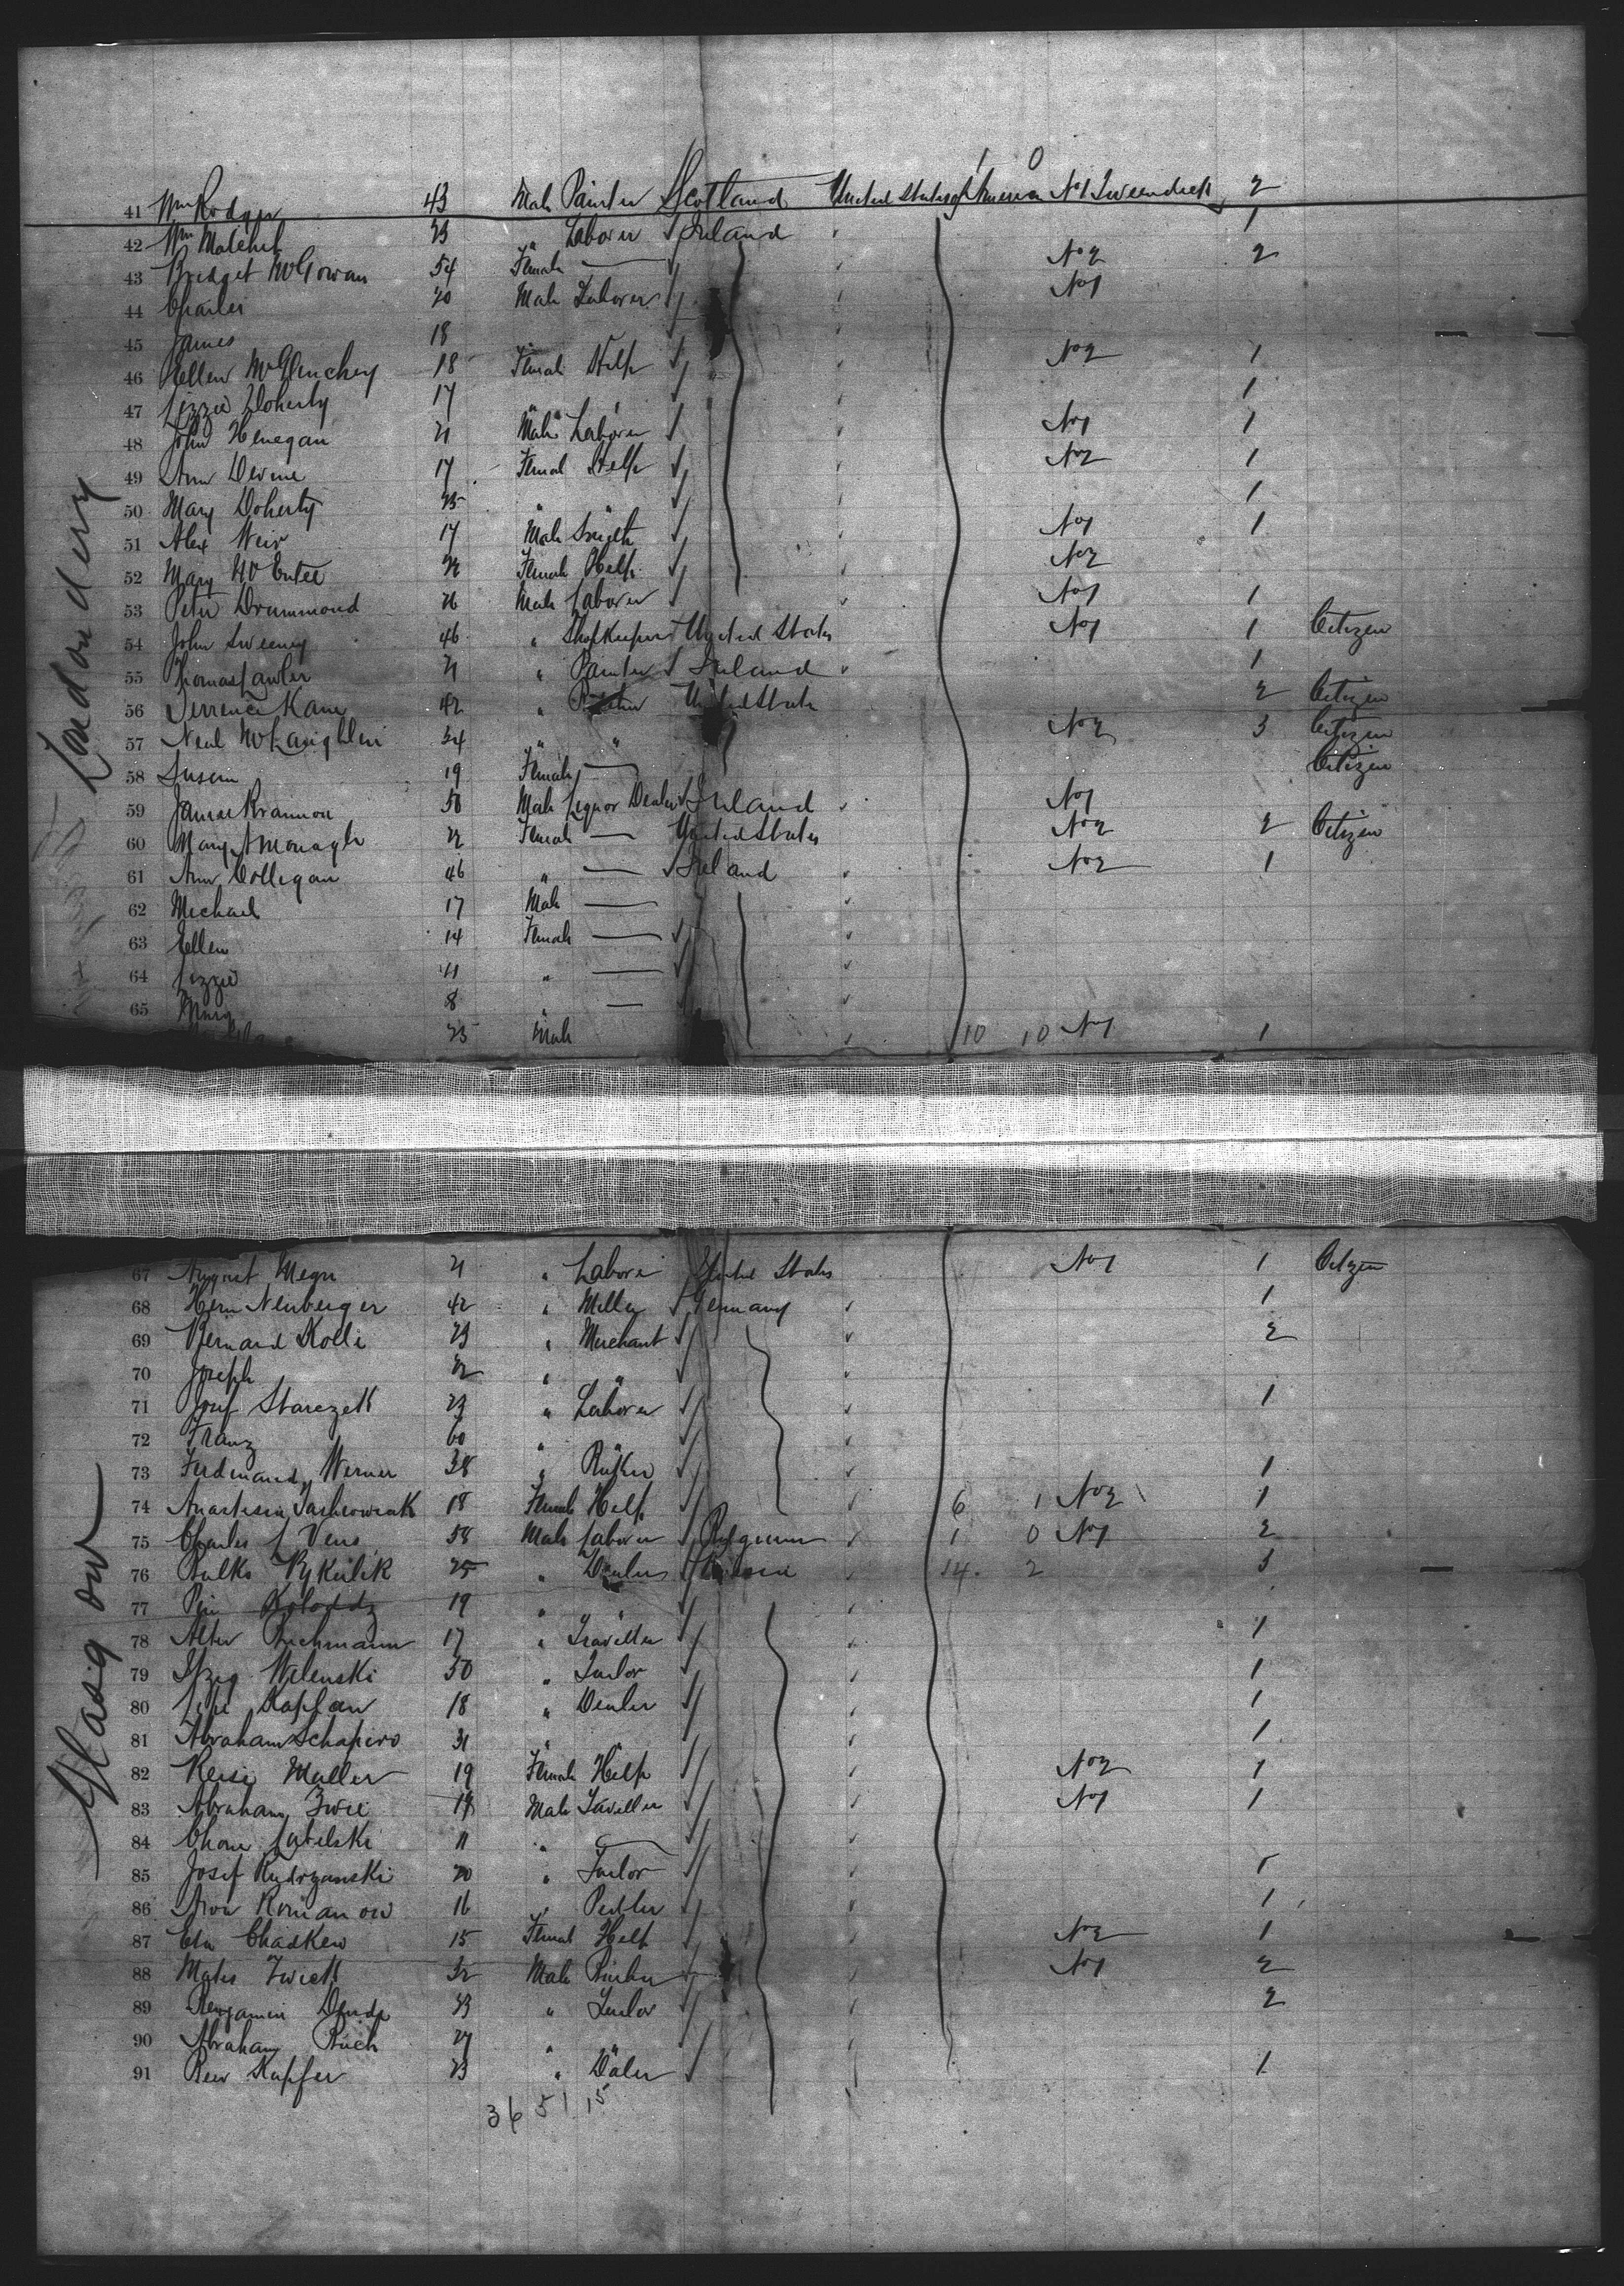 1 0
41 Wm Rodger 43 Male Painter Scotland United States of America No 1 Tweendeck 2
42 Wm Matchet 23 " Laborer Ireland 1
43 Bridget McGowan 54 Female — No 2 2
44 Charles 20 Male Laborer No 1
45 James 18 "
46 Ellen McGlinchey 18 Female Help No 2 1
47 Lizzie Doherty 17 " " 1
48 John Henegan 21 Male Laborer No 1 1
49 Ann Devine 17 Female Help No 2 1
50 Mary Doherty 25 " " 1
51 Alex Weir 17 Male Smith No 1 1
52 Mary McEntee 22 Female Help No 2
53 Peter Drummond 26 Male Laborer No 1 1
54 John Sweeney 46 " Shopkeeper United States No 1 1 Citizen
55 Thomas Lawler 21 " Painter Ireland 1
56 Terrence Kane 42 " United States 2 Citizen
57 Neal McLaughlin 34 " " No 2 3 Citizen
58 Susan 19 Female — Citizen
59 James Brannon 50 Male Liquor Dealer Ireland No 1
60 Mary A Monagle 22 Female — United States No 2 2 Citizen
61 Ann Colligan 46 " — Ireland No 2 1
62 Michael 17 Male —
63 Ellen 14 Female —
64 Lizzie 11 " —
65 Mary 8 " —
25 Male 10 10 No 1 1
Londonderry
67 August 21 " Laborer United States No 1 1 Citizen
68 Herm Neuberger 42 " Miller Germany 1
69 Bernard Kolli 23 " Merchant 2
70 Joseph 22 " "
71 Josef Starczek 23 " Laborer 1
72 Franz 60 " "
73 Ferdinand Werner 38 " 1
74 Anastasia 18 Female Help 6 1 No 2 1
75 Charles L Vens 58 Male Laborer Belgium 1 0 No 1 2
76 Bulko Rykulik 25 " Dealer Russia 14 2 3
77 Koloddz 19 " "
78 Alter Buchmann 17 " Traveller 1
79 Itzig Wilenski 50 " Tailor 1
80 Lipe Kaplan 18 " Dealer 1
81 Abraham Schapiro 31 " " 1
82 Reise Muller 19 Female Help No 2 1
83 Abraham Zwie 19 Male Traveller No 1 1
84 Chone 11 " —
85 Josef Rudrzanski 20 " Tailor 1
86 Aron Romanow 16 " Pedler 1
87 Eta Chadkew 15 Female Help No 2 1
88 Mates Zwick 32 Male No 1 2
89 Benjamin 23 " Tailor 2
90 Abraham Buch 27 " "
91 Beer Kapfer 23 " Daler 1
36 51 15
Glasgow